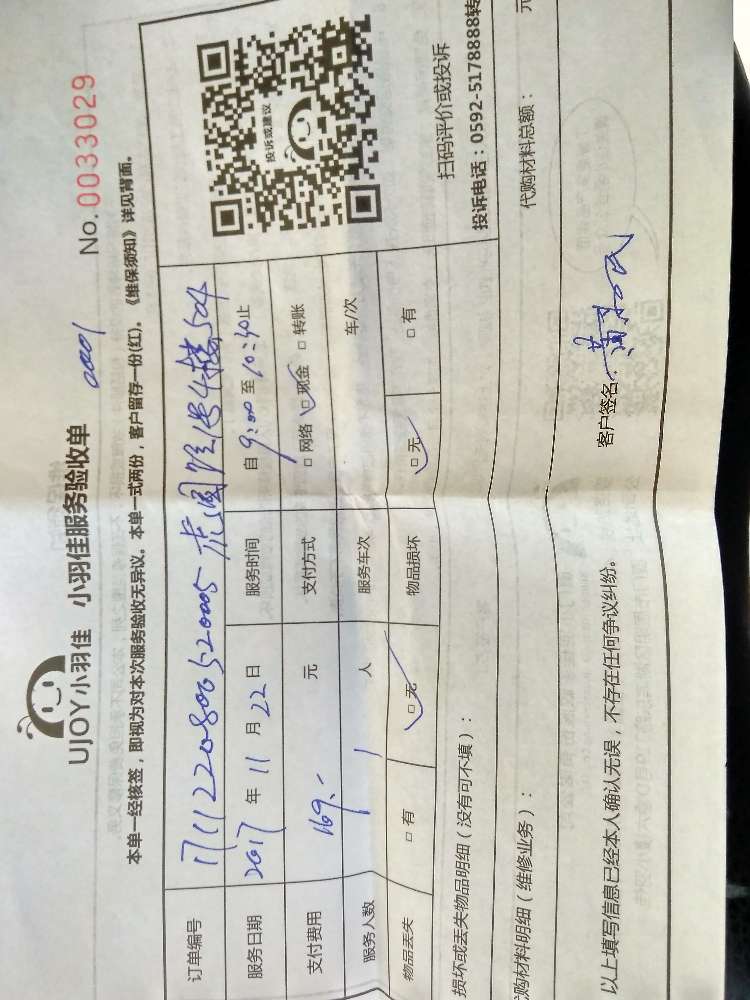 UJOY小羽佳 小羽佳服务验收单 00001 No.0033029
本单一经核签，即视为对本次服务验收无异议。本单一式两份，客户留存一份(红)。《维保须知》详见背面。
订单编号 1711220800520005 504
服务日期 2017 年 11 月 22 日 服务时间 自 9:00 至 10:30 止
支付费用 169.- 元 支付方式 □ 网络 □ 现金 □ 转账
服务人数 1 人 服务车次 车/次
物品丢失 □ 有 □ 无 物品损坏 □ 无 □ 有
投诉或建议
扫码评价或投诉
投诉电话：0592-5178888转
损坏或丢失物品明细（没有可不填）：
购材料明细（维修业务）： 代购材料总额： 元
以上填写信息已经本人确认无误，不存在任何争议纠纷。 客户签名：